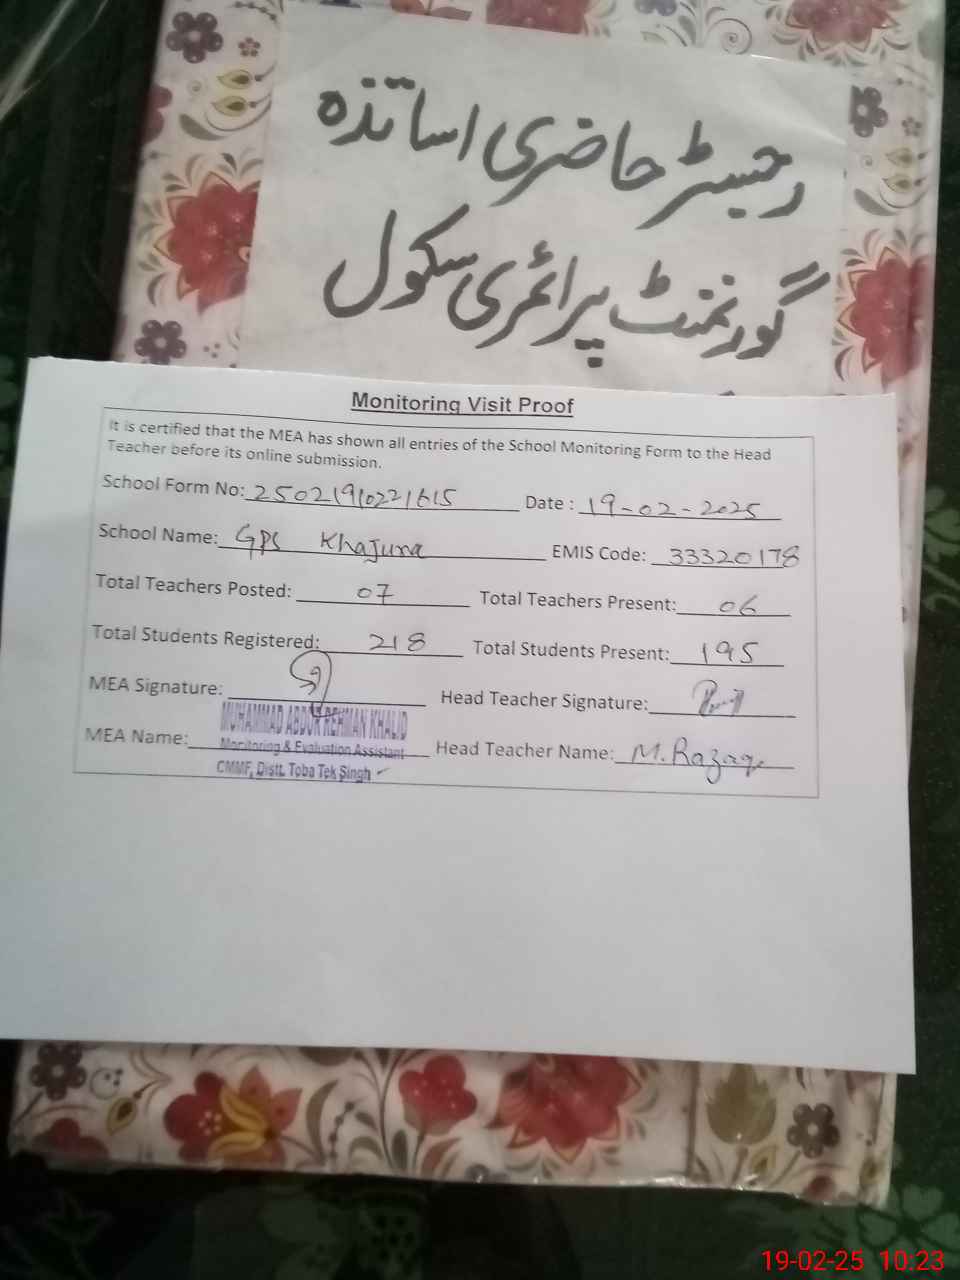 رجسٹر حاضری اساتذہ
گورنمنٹ پرائمری سکول
Monitoring Visit Proof
It is certified that the MEA has shown all entries of the School Monitoring Form to the Head
Teacher before its online submission.
School Form No: 25021910221615 Date : 19-02-2025
School Name: GPS Khajura EMIS Code: 33320178
Total Teachers Posted: 07 Total Teachers Present: 06
Total Students Registered: 218 Total Students Present: 195
MEA Signature: Head Teacher Signature:
MUHAMMAD ABDUR REHMAN KHALID
MEA Name: Monitoring & Evaluation Assistant Head Teacher Name: M. Razaq
CMMF, Distt. Toba Tek Singh
19-02-25 10:23